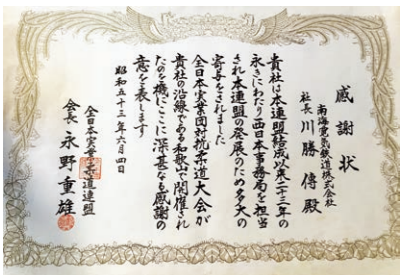 感謝状
南海電気鉄道株式会社
社長 川勝傳殿
貴社は本連盟結成以来二十三年の
永きにわたり西日本事務局を担当
され本連盟の発展のため多大の
寄与をされました
全日本実業団対抗柔道大会が
貴社の沿線である和歌山で開催され
たのを機にここに深甚なる感謝の
意を表します
昭和五十三年六月四日
全日本実業柔道連盟
会長 永野重雄